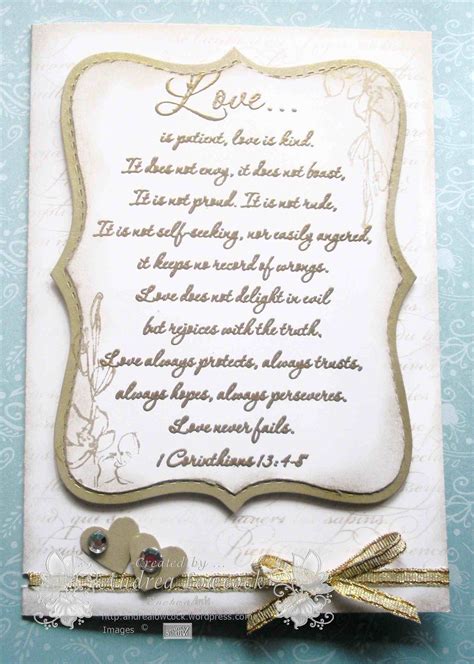 Love...
is patient, love is kind.
It does not envy, it does not boast,
It is not proud. It is not rude,
It is not self-seeking, nor easily angered,
it keeps no record of wrongs.
Love does not delight in evil
but rejoices with the truth.
Love always protects, always trusts,
always hopes, always perseveres.
Love never fails.
1 Corinthians 13:4-8
Created by ...
Andrea Lowcock
http://andrealowcock.wordpress.com
Images ©